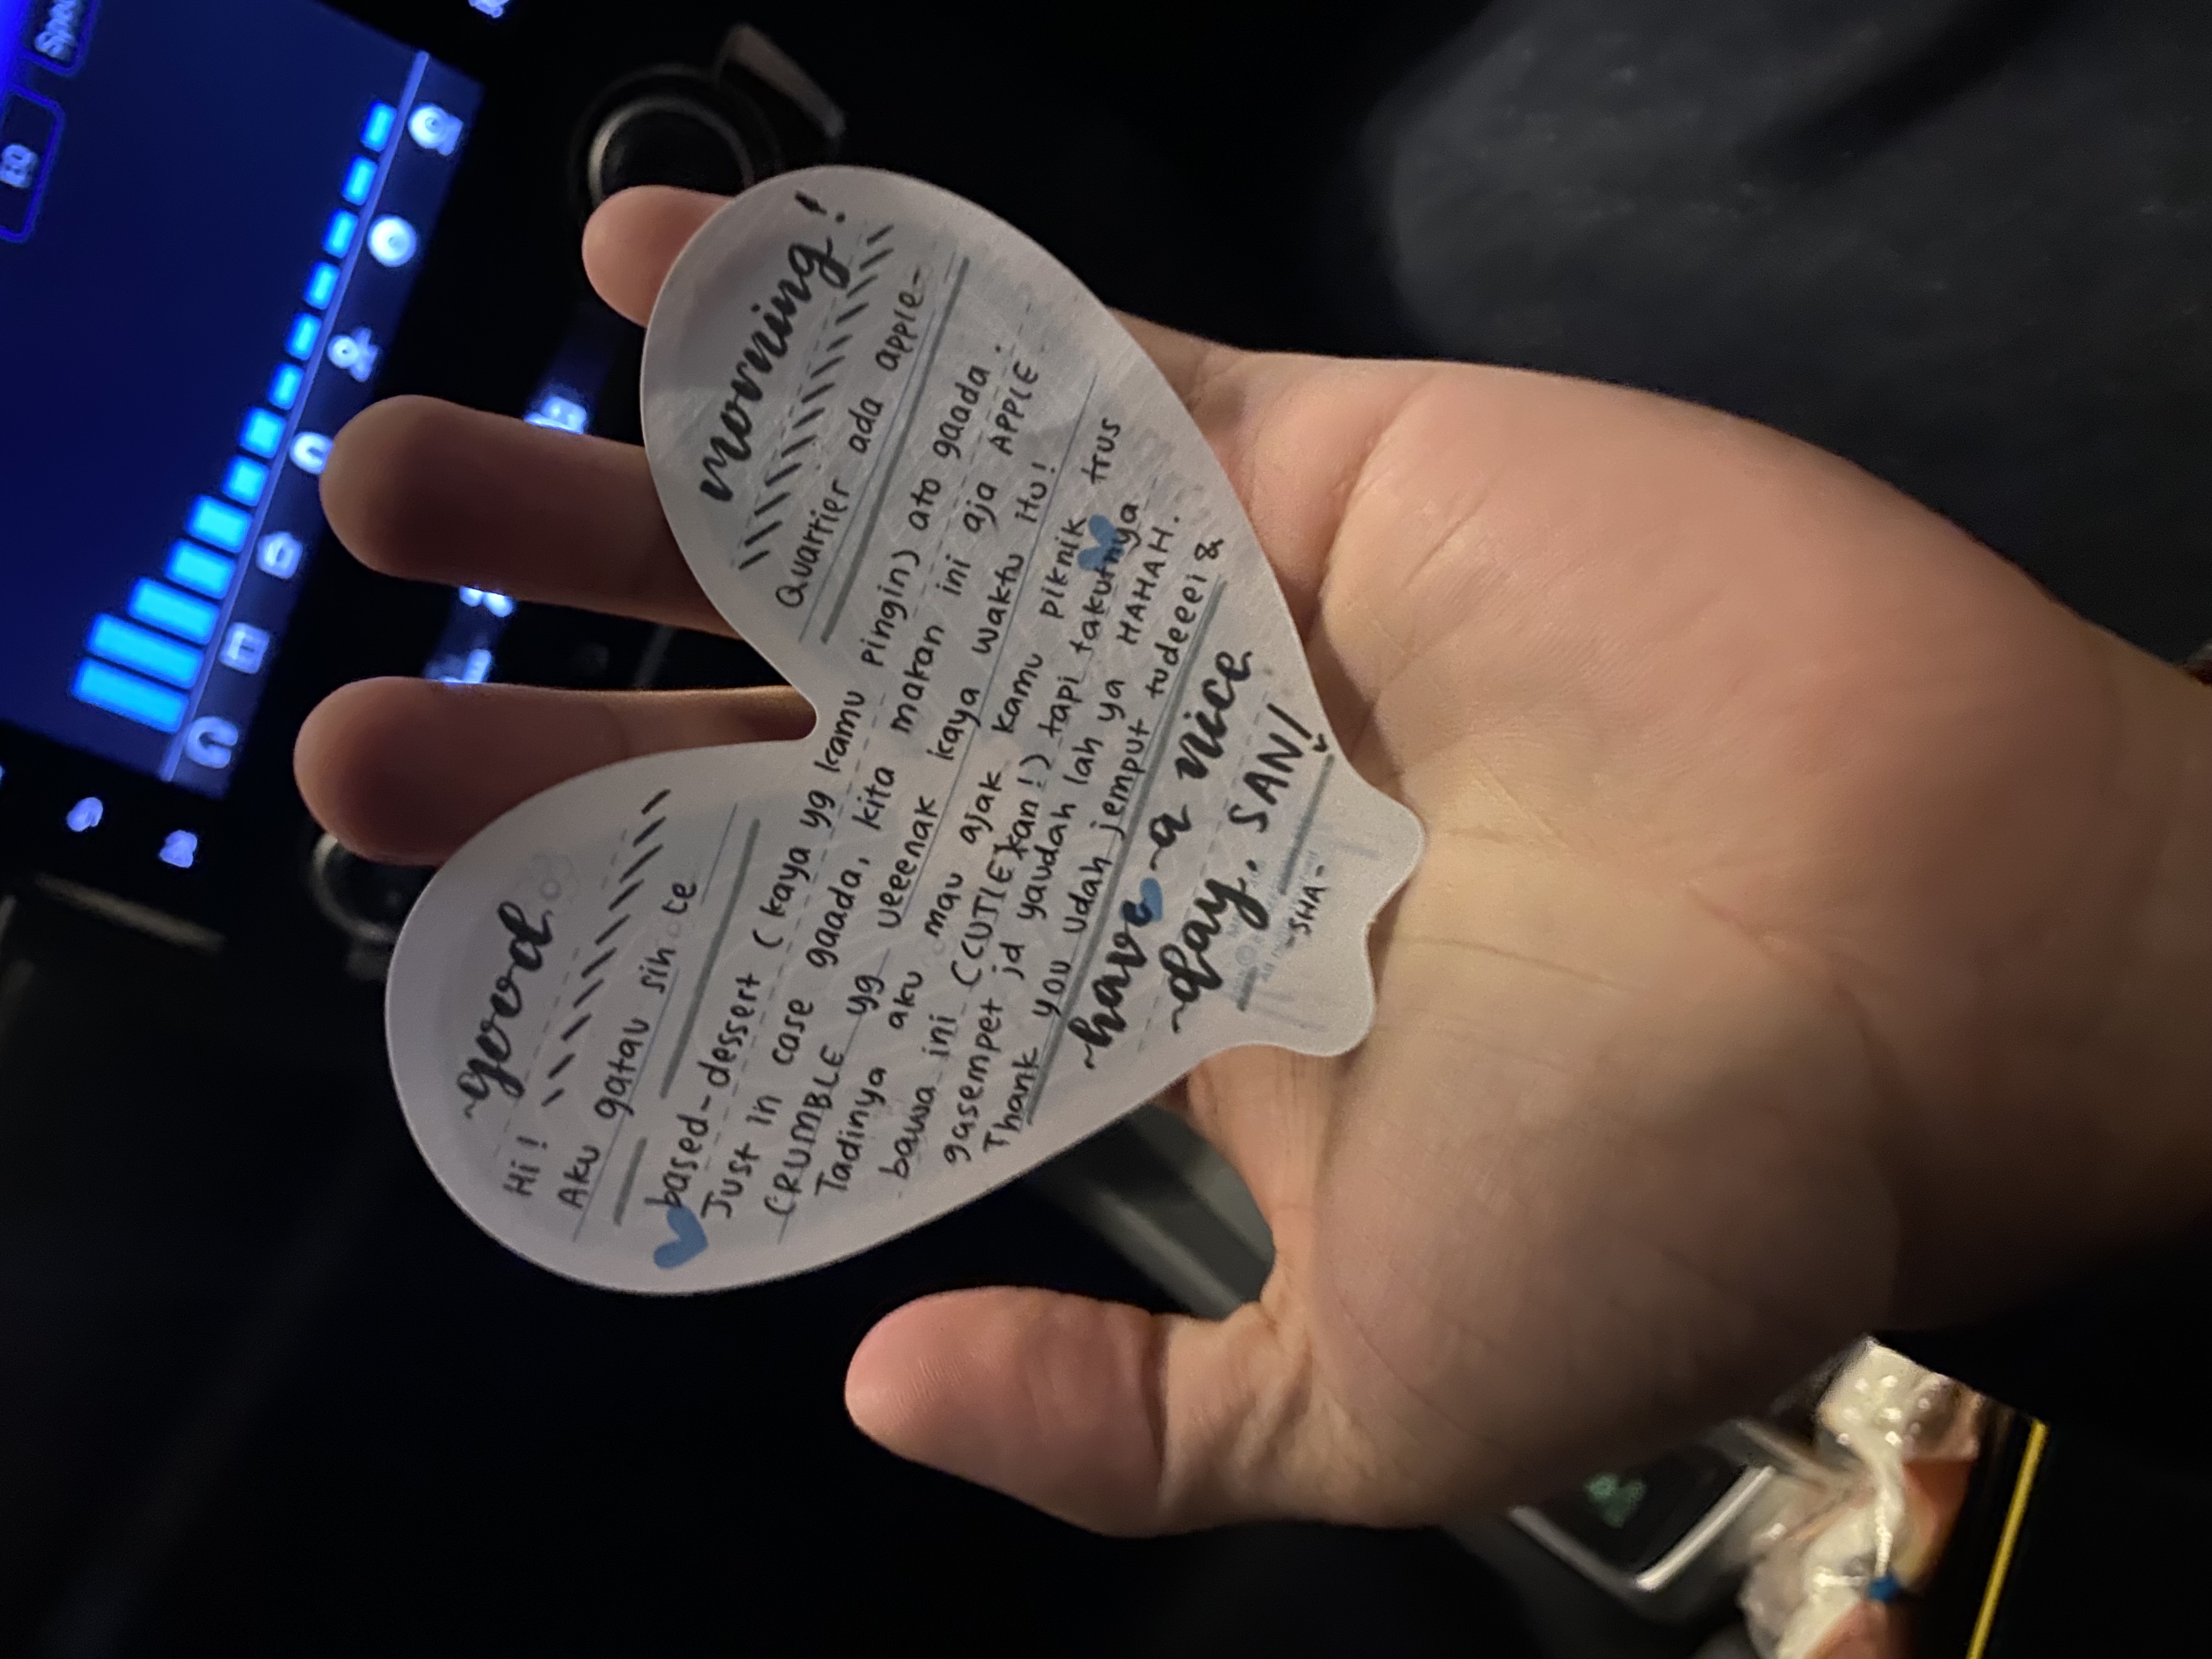 EQ
~good morning!
Hi!
Aku gatau sih te Quartier ada apple-
based-dessert (kaya yg kamu pingin) ato gaada.
Just in case gaada, kita makan ini aja APPLE
CRUMBLE yg ueeenak kaya waktu itu!
Tadinya aku mau ajak kamu piknik trus
bawa ini (CUTIE kan!) tapi takutnya
gasempet jd yaudah lah ya HAHAH.
Thank you udah jemput tudeeei &
~have ~a nice
~day, SAN!
-SHA-